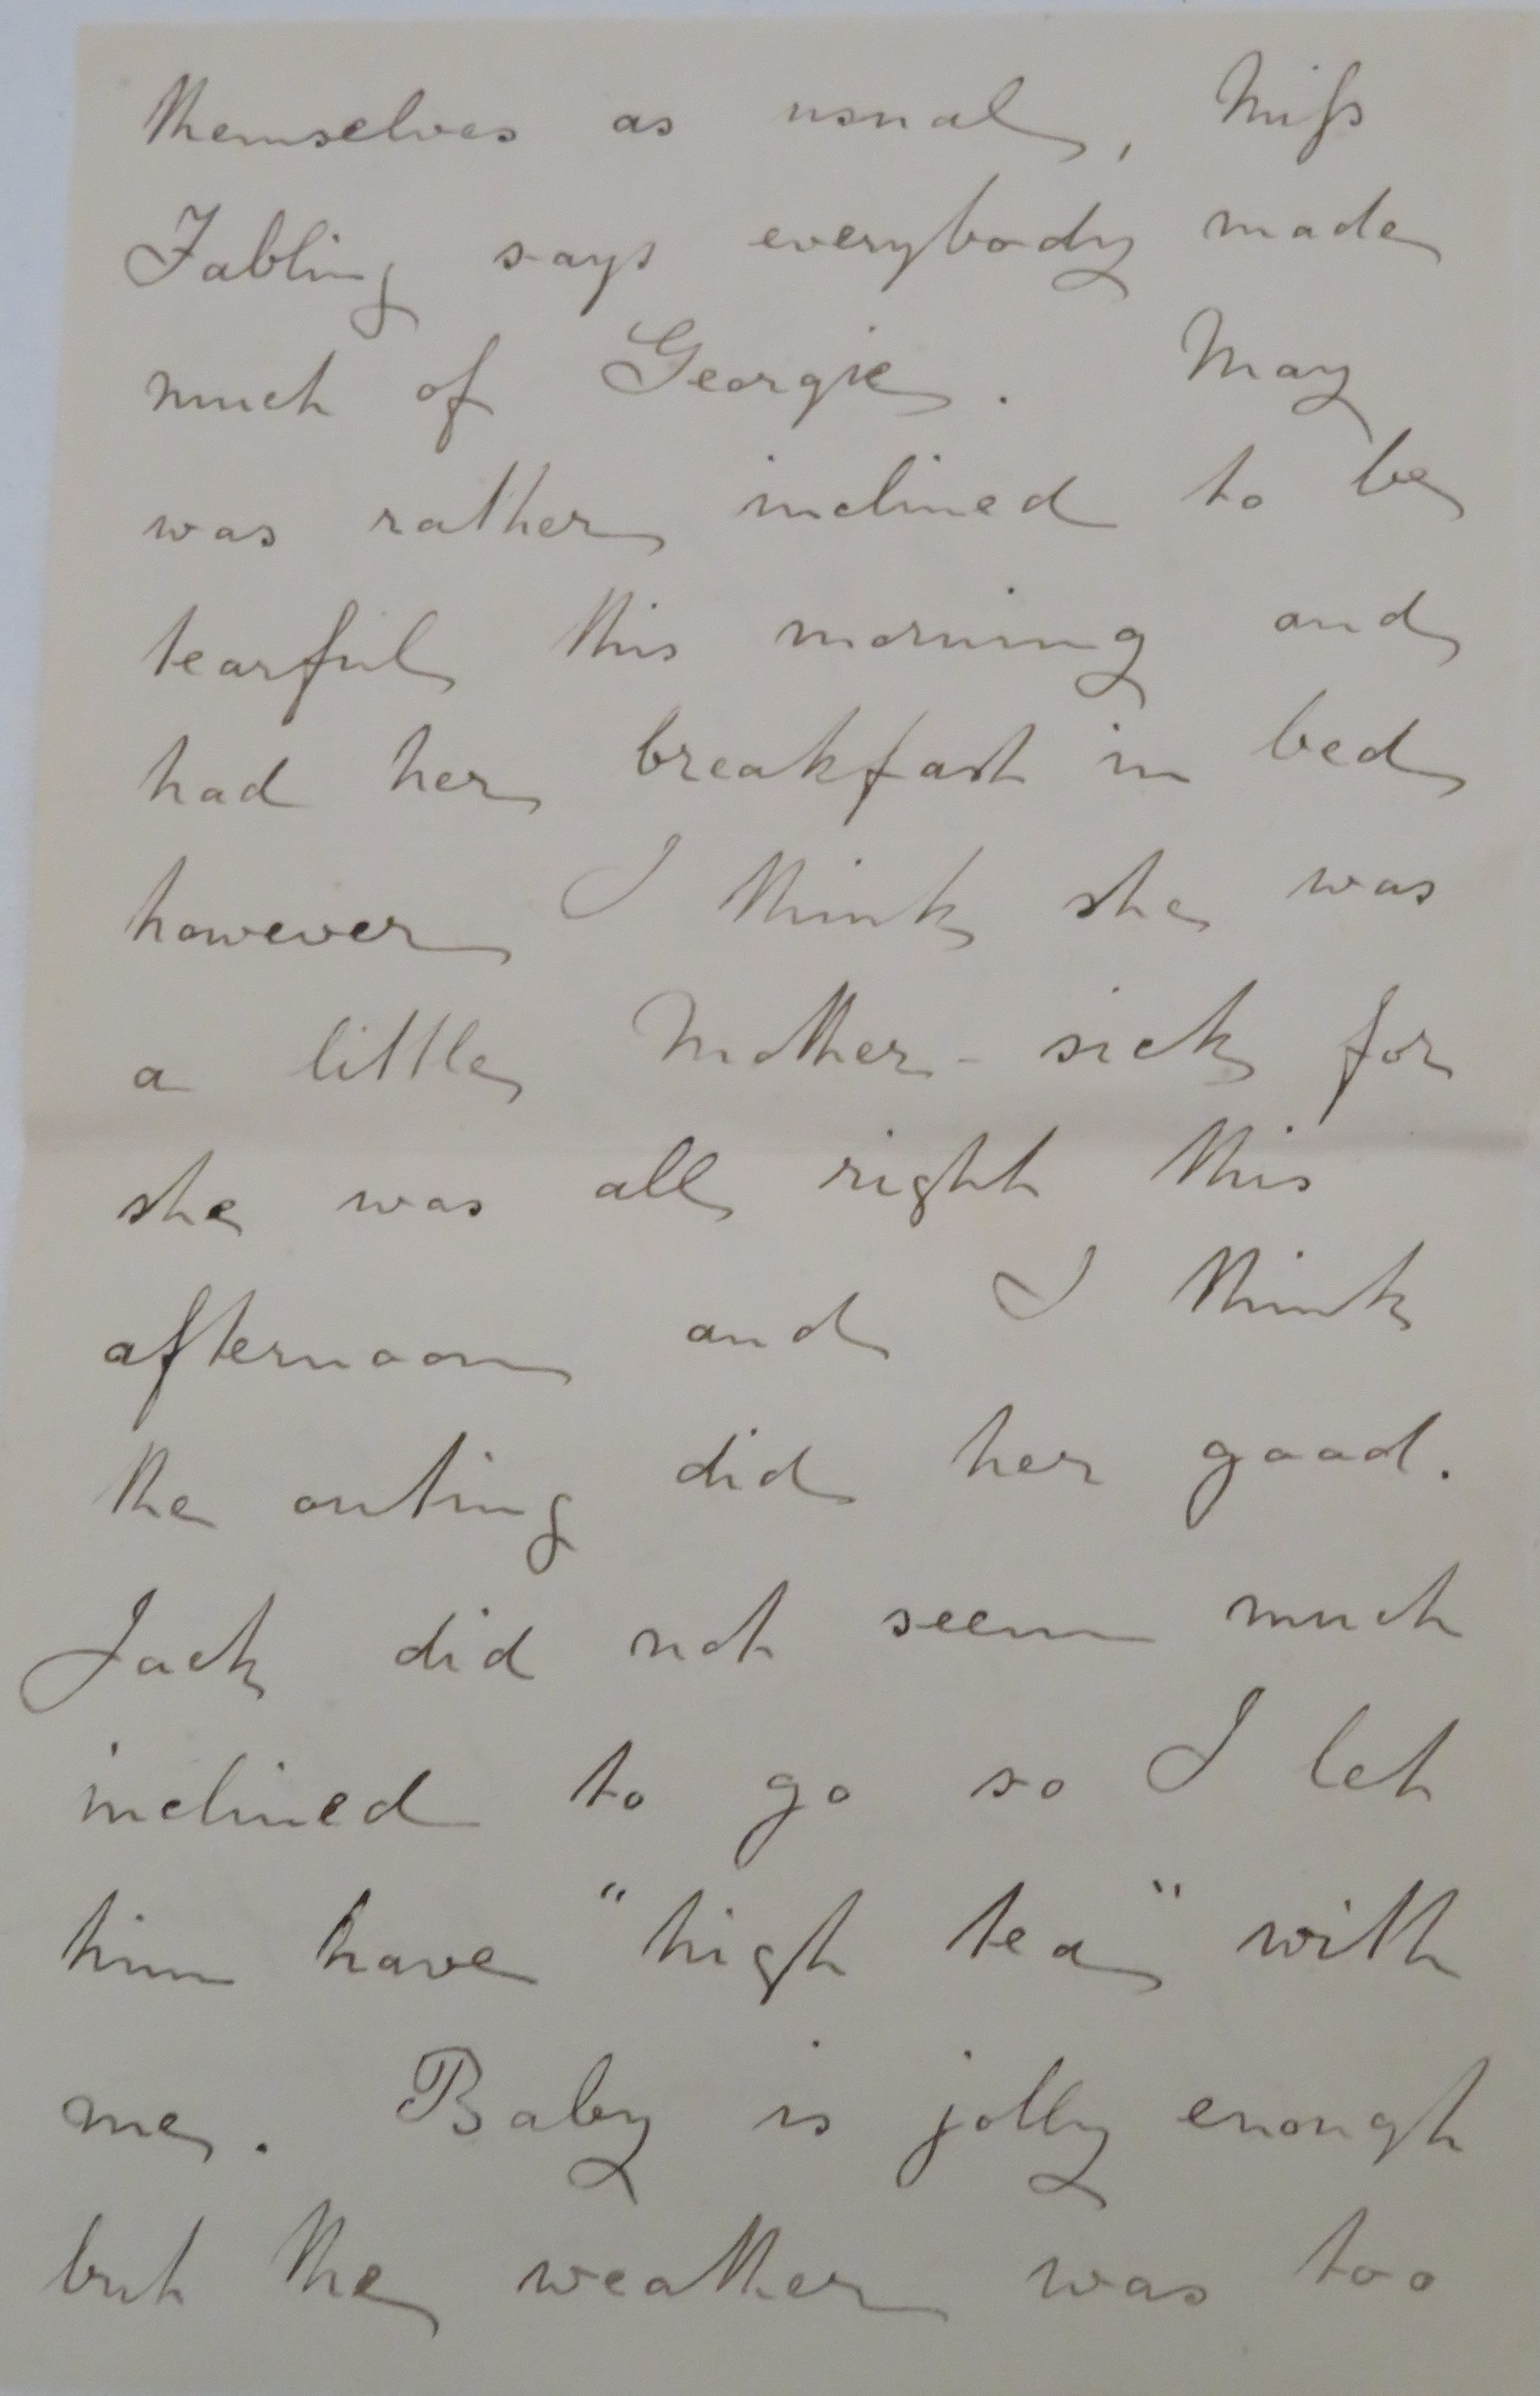 themselves as usual, Miss
Fabling says everybody made
much of Georgie. May
was rather inclined to be
tearful this morning and
had her breakfast in bed
however I think she was
a little Mother-sick for
she was all right this
afternoon and I think
the outing did her good.
Jack did not seem much
inclined to go so I let
him have "high tea" with
me. Baby is jolly enough
but the weather was too